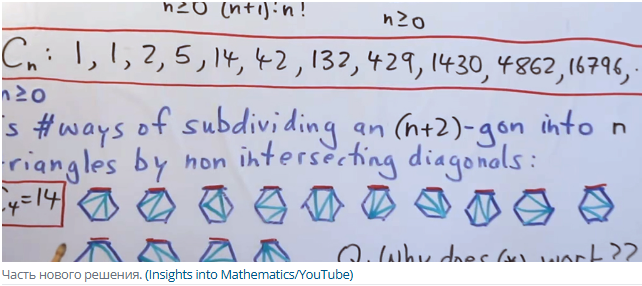 n≥0 (n+1)!n! n≥0
Cₙ: 1, 1, 2, 5, 14, 42, 132, 429, 1430, 4862, 16796,
n≥0
s #ways of subdividing an (n+2)-gon into n
riangles by non intersecting diagonals:
C₄=14
Q. Why does (*) work??
Часть нового решения. (Insights into Mathematics/YouTube)